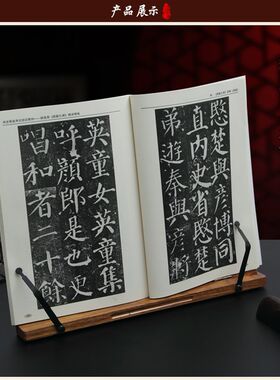 产品展示
愍楚與彥博同
直内史省愍楚
弟遊秦與彥將
英童女英童集
呼顏郎是也更
唱和者二十餘